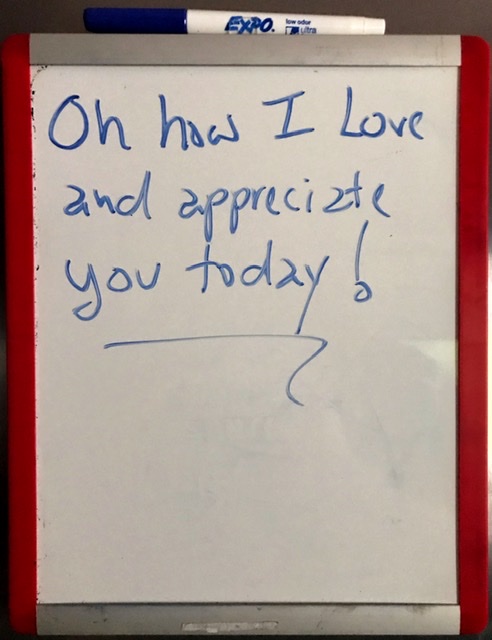 EXPO.
low odor
ultra
Oh how I Love
and appreciate
you today!